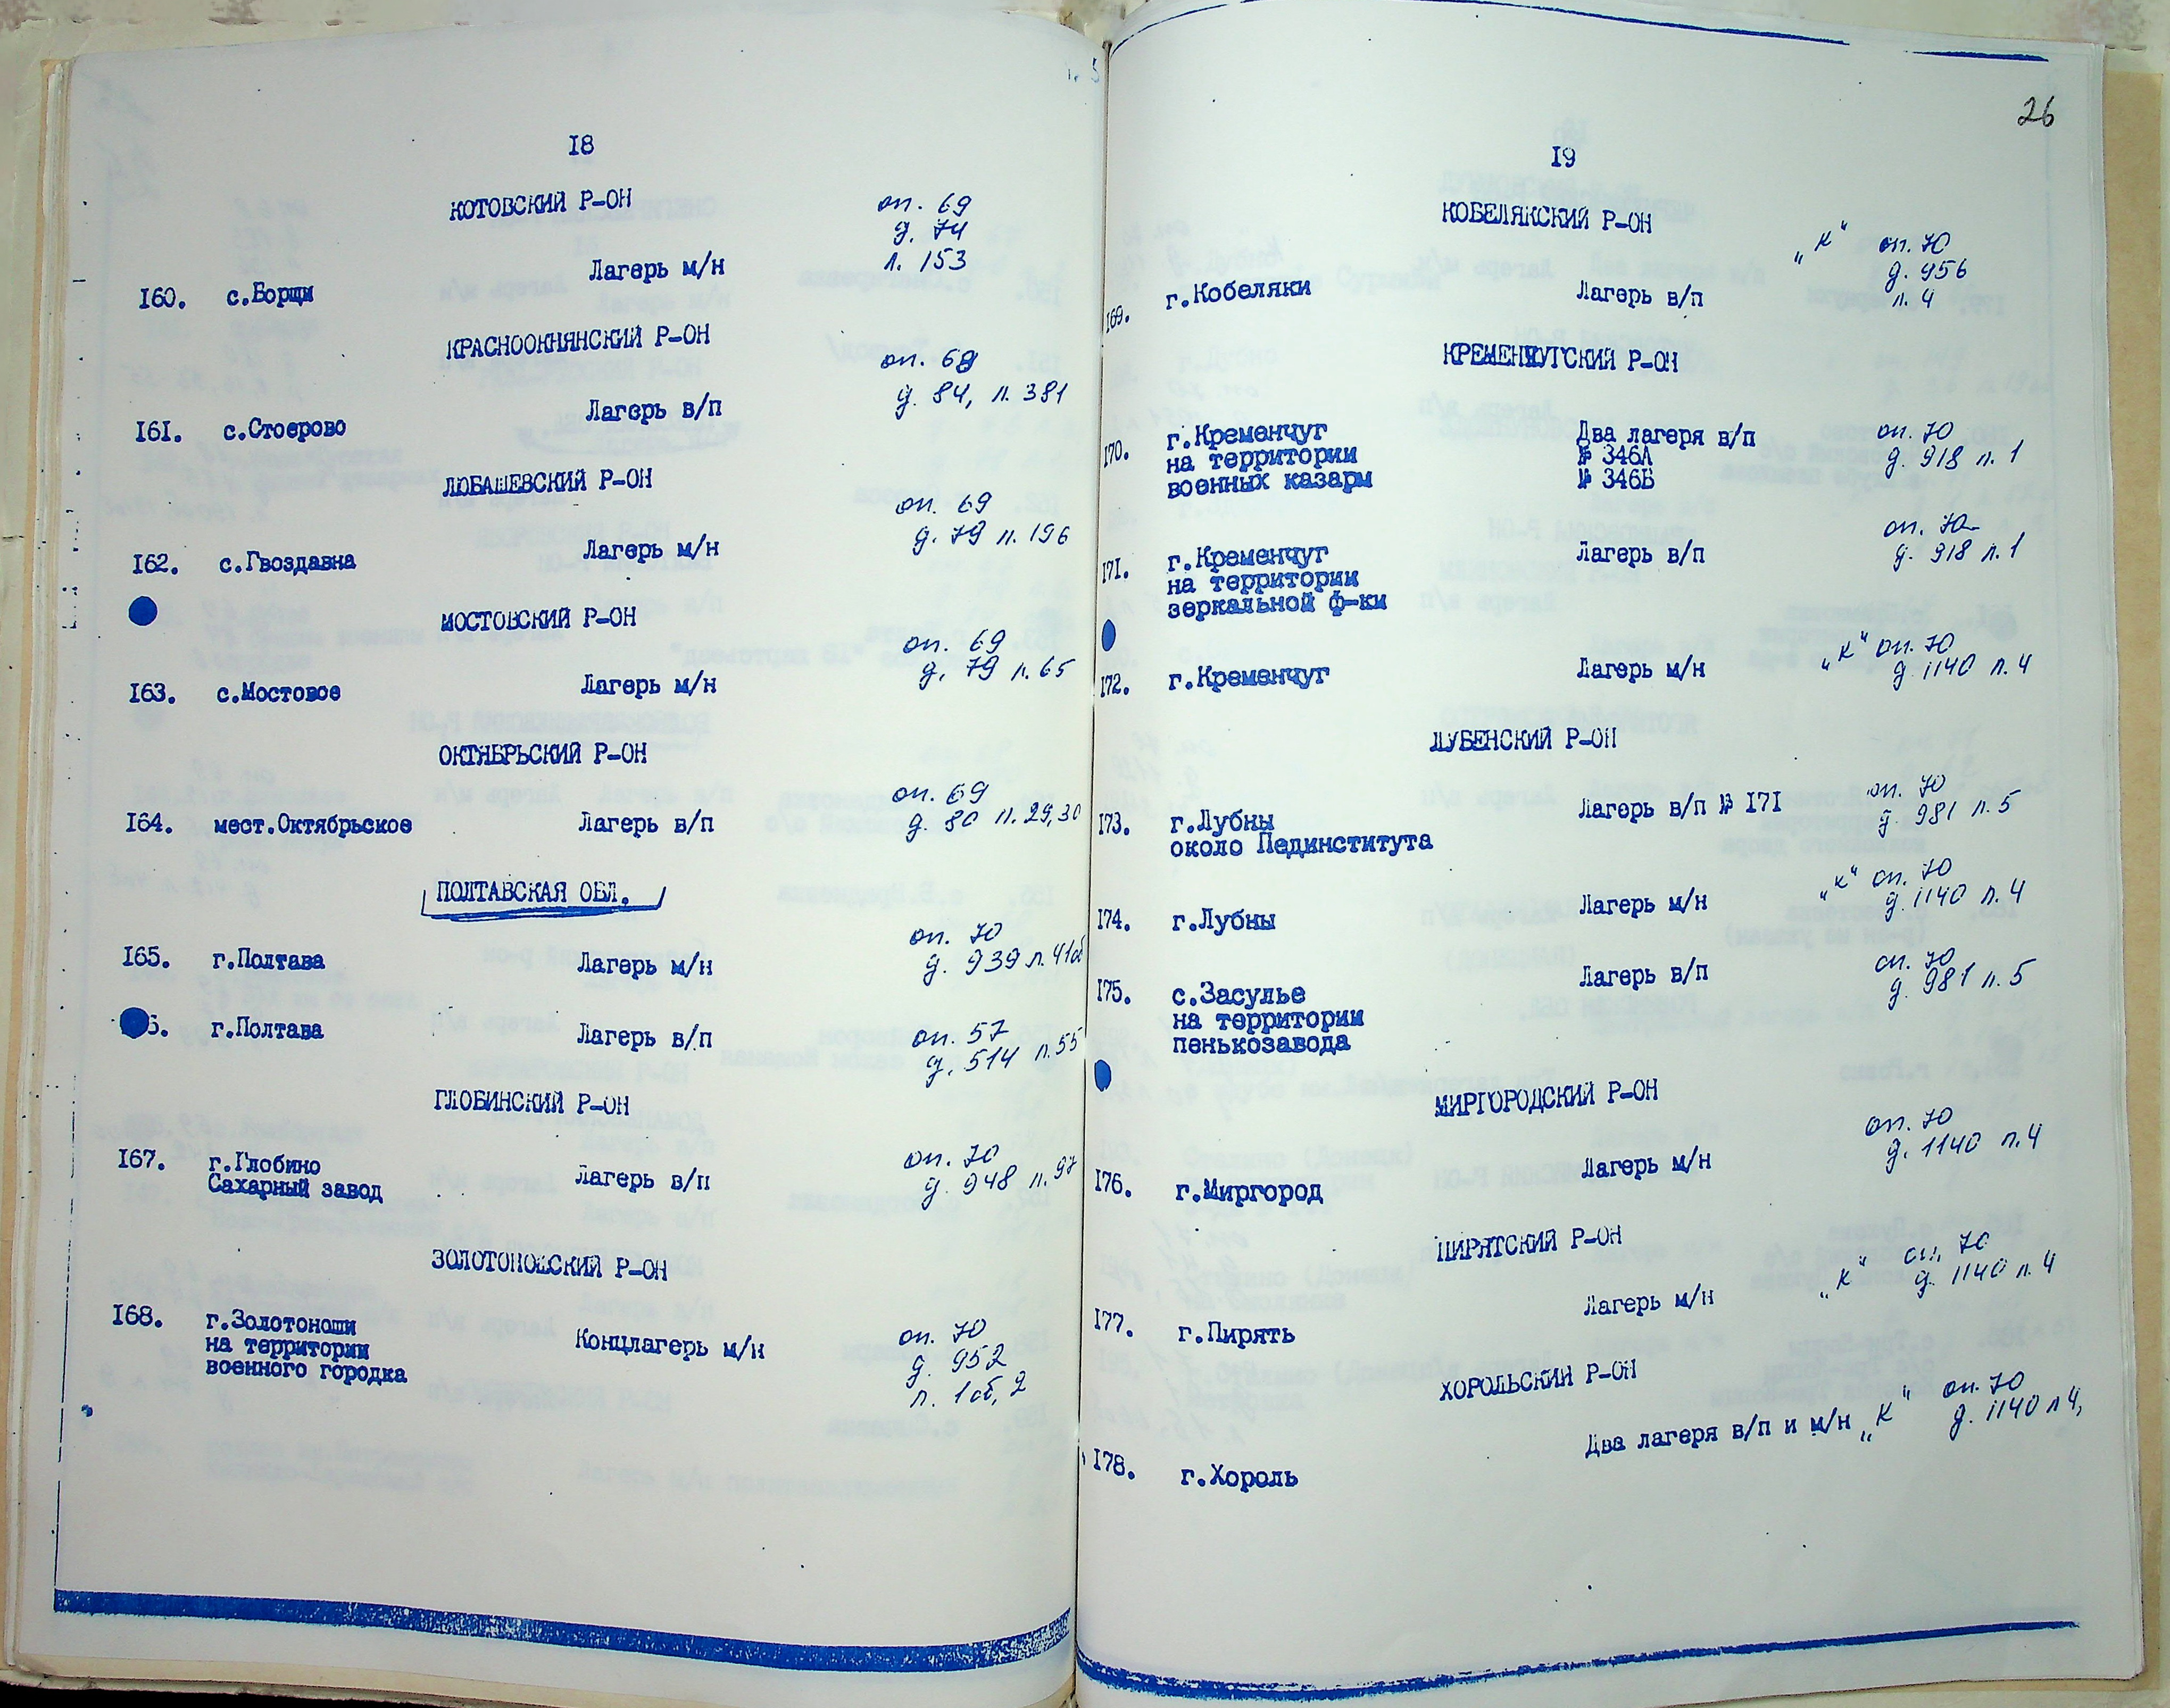 18
КОТОВСКИЙ Р-ОН
оп. 69
д. 74
л. 153
160. с.Борщи Лагерь м/н
КРАСНООКНЯНСКИЙ Р-ОН
оп. 69
д. 84, л. 381
161. с.Стоерово Лагерь в/п
ЛЮБАШЕВСКИЙ Р-ОН
оп. 69
д. 79 л. 196
162. с.Гвоздавна Лагерь м/н
МОСТОВСКИЙ Р-ОН
оп. 69
д. 79 л. 65
163. с.Мостовое Лагерь м/н
ОКТЯБРЬСКИЙ Р-ОН
оп. 69
д. 80 л. 29,30
164. мест.Октябрьское Лагерь в/п
ПОЛТАВСКАЯ ОБЛ.
оп. 70
д. 939 л. 41об
165. г.Полтава Лагерь м/н
6. г.Полтава Лагерь в/п оп. 57
д. 514 л. 55
ГЛОБИНСКИЙ Р-ОН
167. г.Глобино Лагерь в/п оп. 70
Сахарный завод д. 948 л. 97
ЗОЛОТОНОШСКИЙ Р-ОН
168. г.Золотоноши Концлагерь м/н оп. 70
на территории д. 952
военного городка л. 1об, 2
26
19
КОБЕЛЯКСКИЙ Р-ОН
„К" оп. 70
д. 956
л. 4
169. г.Кобеляки Лагерь в/п
КРЕМЕНЧУГСКИЙ Р-ОН
170. г.Кременчуг Два лагеря в/п оп. 70
на территории № 346А д. 918 л. 1
военных казарм № 346Б
171. г.Кременчуг Лагерь в/п оп. 70
на территории д. 918 л. 1
зеркальной ф-ки
172. г.Кременчуг Лагерь м/н „К" оп. 70
д. 1140 л. 4
ЛУБЕНСКИЙ Р-ОН
173. г.Лубны Лагерь в/п № 171 оп. 70
около Пединститута д. 981 л. 5
174. г.Лубны Лагерь м/н „К" оп. 70
д. 1140 л. 4
175. с.Засулье Лагерь в/п оп. 70
на территории д. 981 л. 5
пенькозавода
МИРГОРОДСКИЙ Р-ОН
оп. 70
д. 1140 л. 4
176. г.Миргород Лагерь м/н
ПИРЯТСКИЙ Р-ОН
„К" оп. 70
д. 1140 л. 4
177. г.Пирять Лагерь м/н
ХОРОЛЬСКИЙ Р-ОН
178. г.Хороль Два лагеря в/п и м/н „К" оп. 70
д. 1140 л 4,